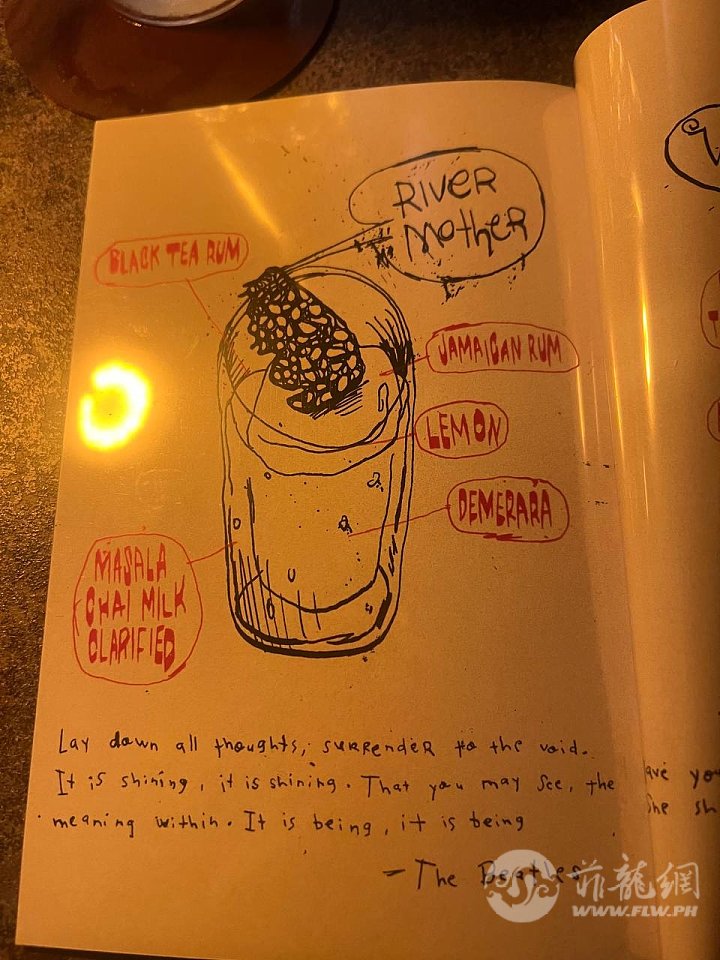 RIVER
MOTHER
BLACK TEA RUM
JAMAICAN RUM
LEMON
DEMERARA
MASALA
CHAI MILK
CLARIFIED
Lay down all thoughts, surrender to the void.
It is shining, it is shining. That you may see, the
meaning within. It is being, it is being
- The Beatles
ave you
she sh
菲龍網
WWW.FLW.PH